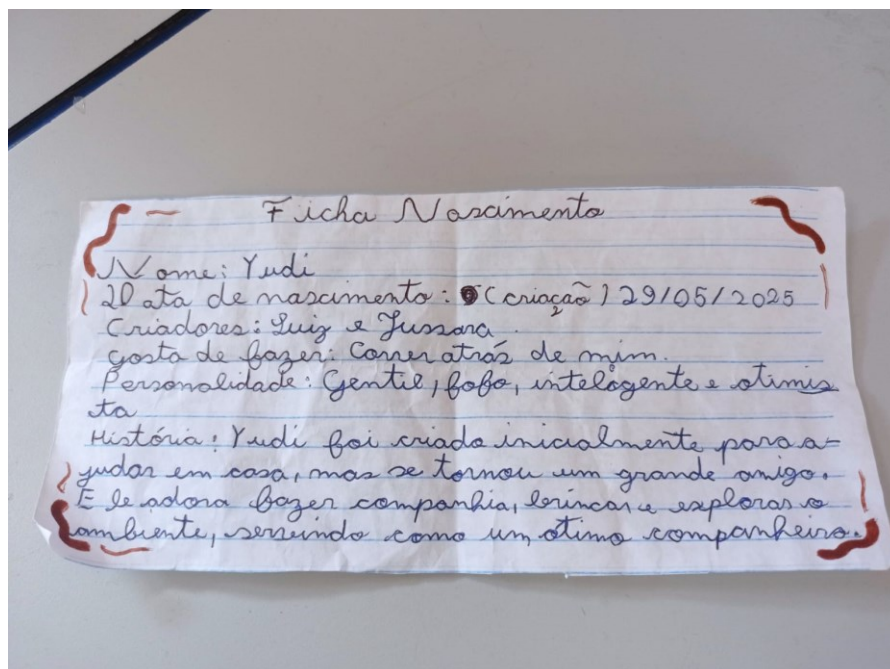 Ficha Nascimento
Nome: Yudi
Data de nascimento: (criação) 29/05/2025
Criadores: Luiz e Jussara.
gosta de fazer: Correr atrás de mim.
Personalidade: Gentil, fofo, inteligente e otimis
ta
História: Yudi foi criado inicialmente para a-
judar em casa, mas se tornou um grande amigo.
Ele adora fazer companhia, brincar e explorar o
ambiente, servindo como um otimo companheiro.